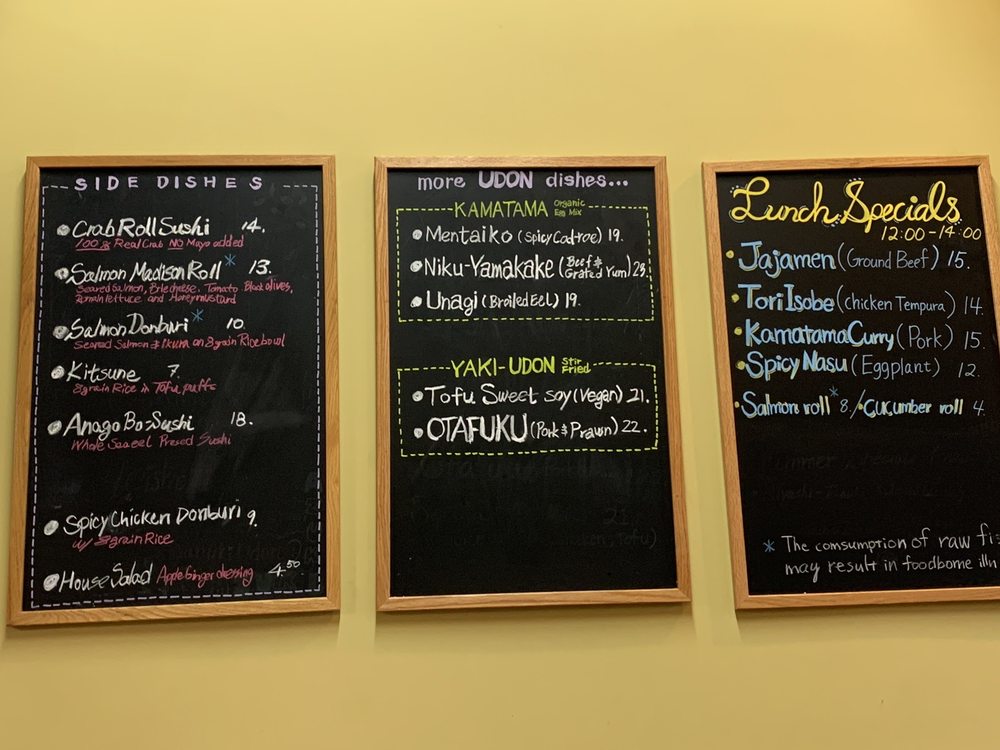 SIDE DISHES
Crab Roll Sushi 14.
100% Real Crab NO Mayo added
Salmon Madison Roll * 13.
Seared Salmon, Brie cheese, Tomato Black olives,
Romain lettuce and Honey mustard
Salmon Donburi * 10.
Seared Salmon & Ikura on 8 grain Rice bowl
Kitsune 7.
8 grain Rice in Tofu puffs
Anago Bo-Sushi 18.
Whole Sea eel Pressed Sushi
Spicy Chicken Donburi 9.
w/ 8 grain Rice
House Salad Apple Ginger dressing 4.50
more UDON dishes...
KAMATAMA Organic Egg Mix
Mentaiko (Spicy Cod-roe) 19.
Niku-Yamakake (Beef & Grated Yum) 23.
Unagi (Broiled Eel) 19.
YAKI-UDON Stir Fried
Tofu Sweet soy (Vegan) 21.
OTAFUKU (Pork & Prawn) 22.
Lunch Specials
12:00-14:00
Jajamen (Ground Beef) 15.
Tori Isobe (chicken Tempura) 14.
Kamatama Curry (Pork) 15.
Spicy Nasu (Eggplant) 12.
Salmon roll * 8. / Cucumber roll 4.
* The comsumption of raw fis
may result in foodborne illn